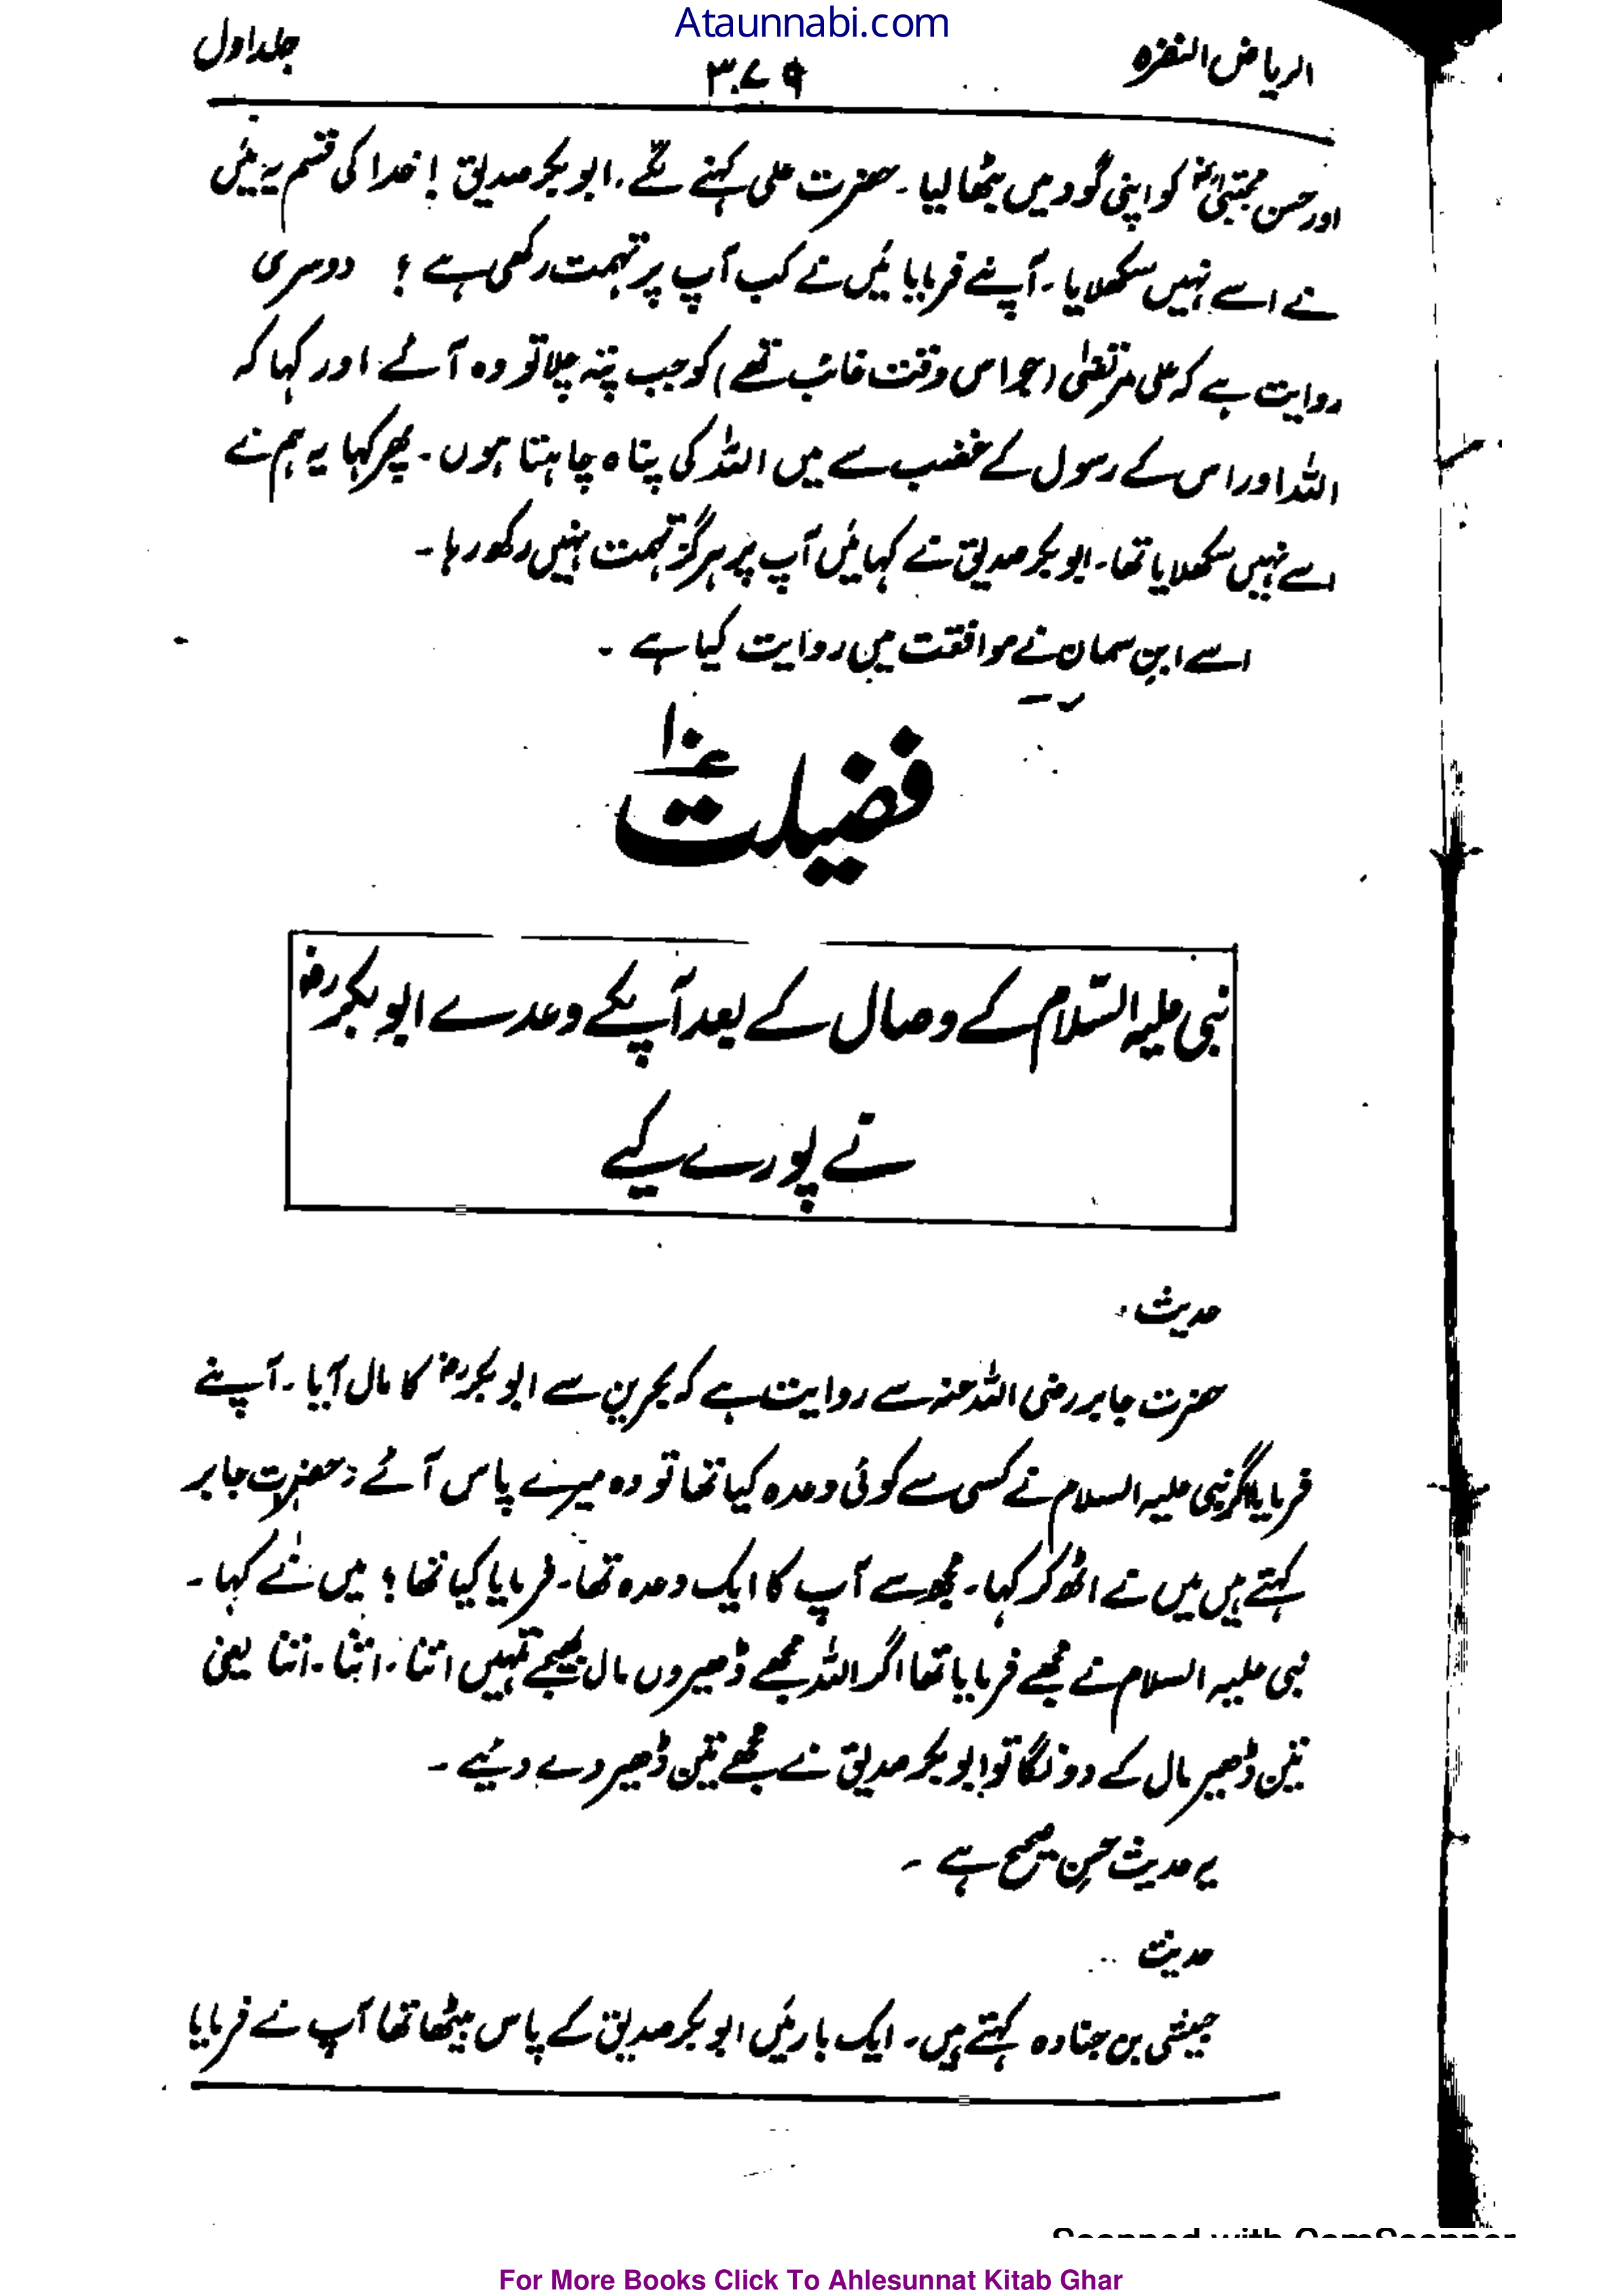 Ataunnabi.com
الریاض النضرہ ۳۷۹ جلد اول
اور حسن مجتبیٰؓ کو اپنی گود میں بٹھا لیا۔ حضرت علی کہنے لگے۔ ابو بکر صدیق! خدا کی قسم یہ میَں
نے اسے نہیں سکھلایا۔ آپنے فرمایا میَں نے کب آپ پر تہمت رکھی ہے؟ دوسری
روایت ہے کہ علی مرتضیٰ (جو اس وقت غائب تھے) کو جب پتہ چلا تو وہ آئے اور کہا کہ
اللہ اور اس کے رسول کے غضب سے میں اللہ کی پناہ چاہتا ہوں۔ پھر کہا یہ ہم نے
اسے نہیں سکھلایا تھا۔ ابو بکر صدیق نے کہا میَں آپ پر ہرگز تہمت نہیں رکھ رہا۔
اسے ابن سمان نے موافقت میں روایت کیا ہے۔
فضیلت ۱۰
نبی علیہ السّلام کے وصال کے بعد آپکے وعدے ابو بکر رضؓ
نے پورے کیے
حدیث:
حضرت جابر رضی اللہ عنہ سے روایت ہے کہ بحرین سے ابو بکر رضؓ کا مال آیا۔ آپنے
فرمایا اگر نبی علیہ السلام نے کسی سے کوئی وعدہ کیا تھا تو وہ میرے پاس آئے: حضرت جابر
کہتے ہیں میں نے اٹھ کر کہا۔ مجھ سے آپ کا ایک وعدہ تھا۔ فرمایا کیا تھا؟ میں نے کہا۔
نبی علیہ السلام نے مجھے فرمایا تھا اگر اللہ مجھے ڈھیروں مال بھیجے تمہیں اتنا۔ اتنا۔ اتنا یعنی
تین ڈھیر مال کے دونگا تو ابو بکر صدیق نے مجھے تین ڈھیر دے دیئے۔
یہ حدیث حسن صحیح ہے۔
حدیث
حبشی بن جنادہ کہتے ہیں۔ ایک بار میَں ابو بکر صدیق کے پاس بیٹھا تھا آپ نے فرمایا
Scanned with CamScanner
For More Books Click To Ahlesunnat Kitab Ghar